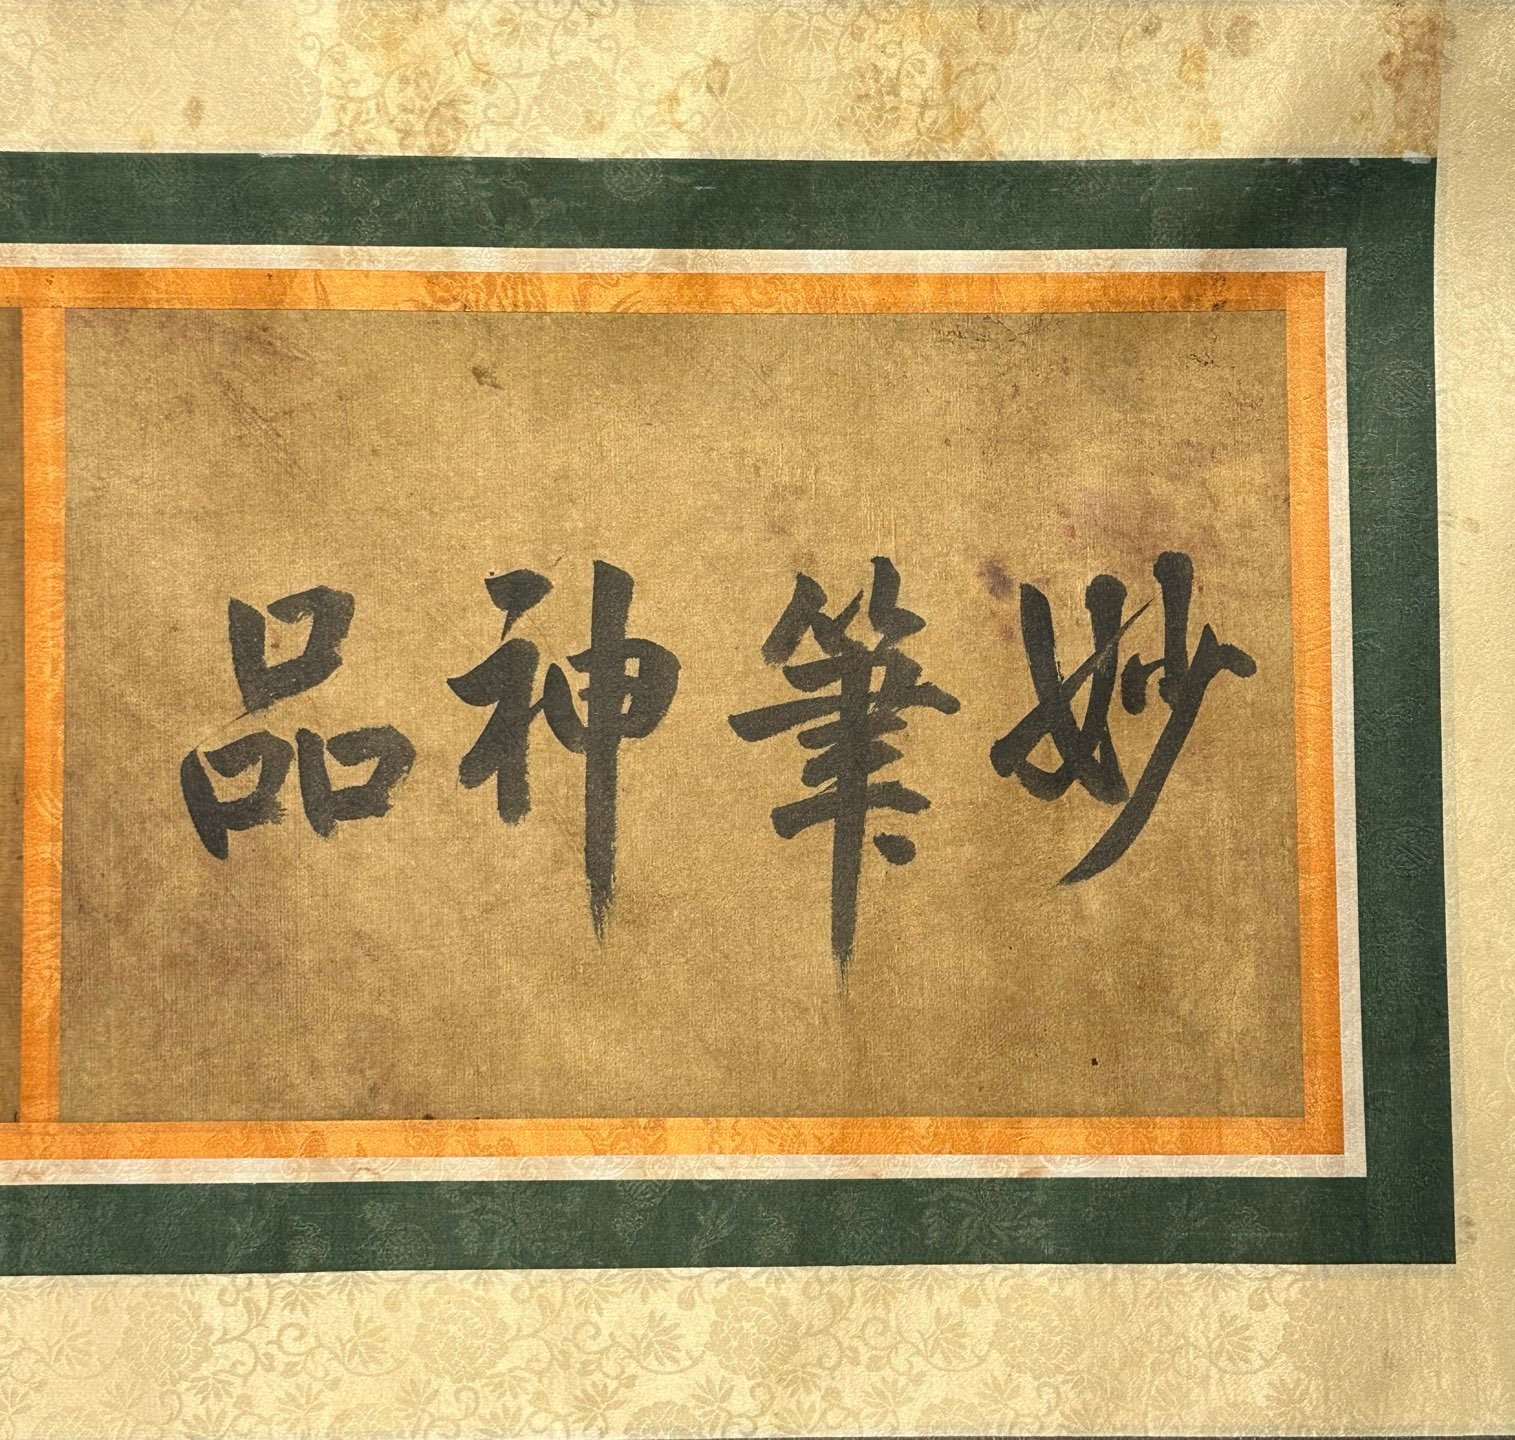 妙筆神品